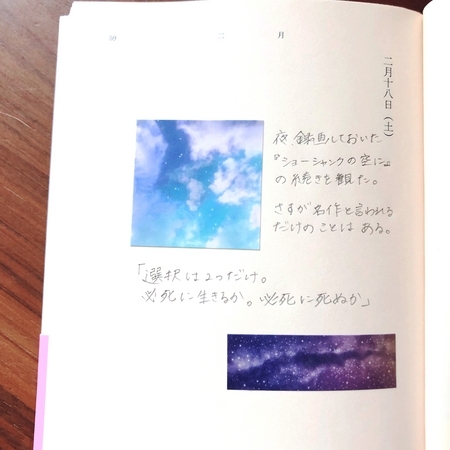 50
二月
二月十八日(土)
夜、録画しておいた
『ショーシャンクの空に』
の続きを観た。
さすが名作と言われる
だけのことはある。
「選択は2つだけ。
必死に生きるか。必死に死ぬか」